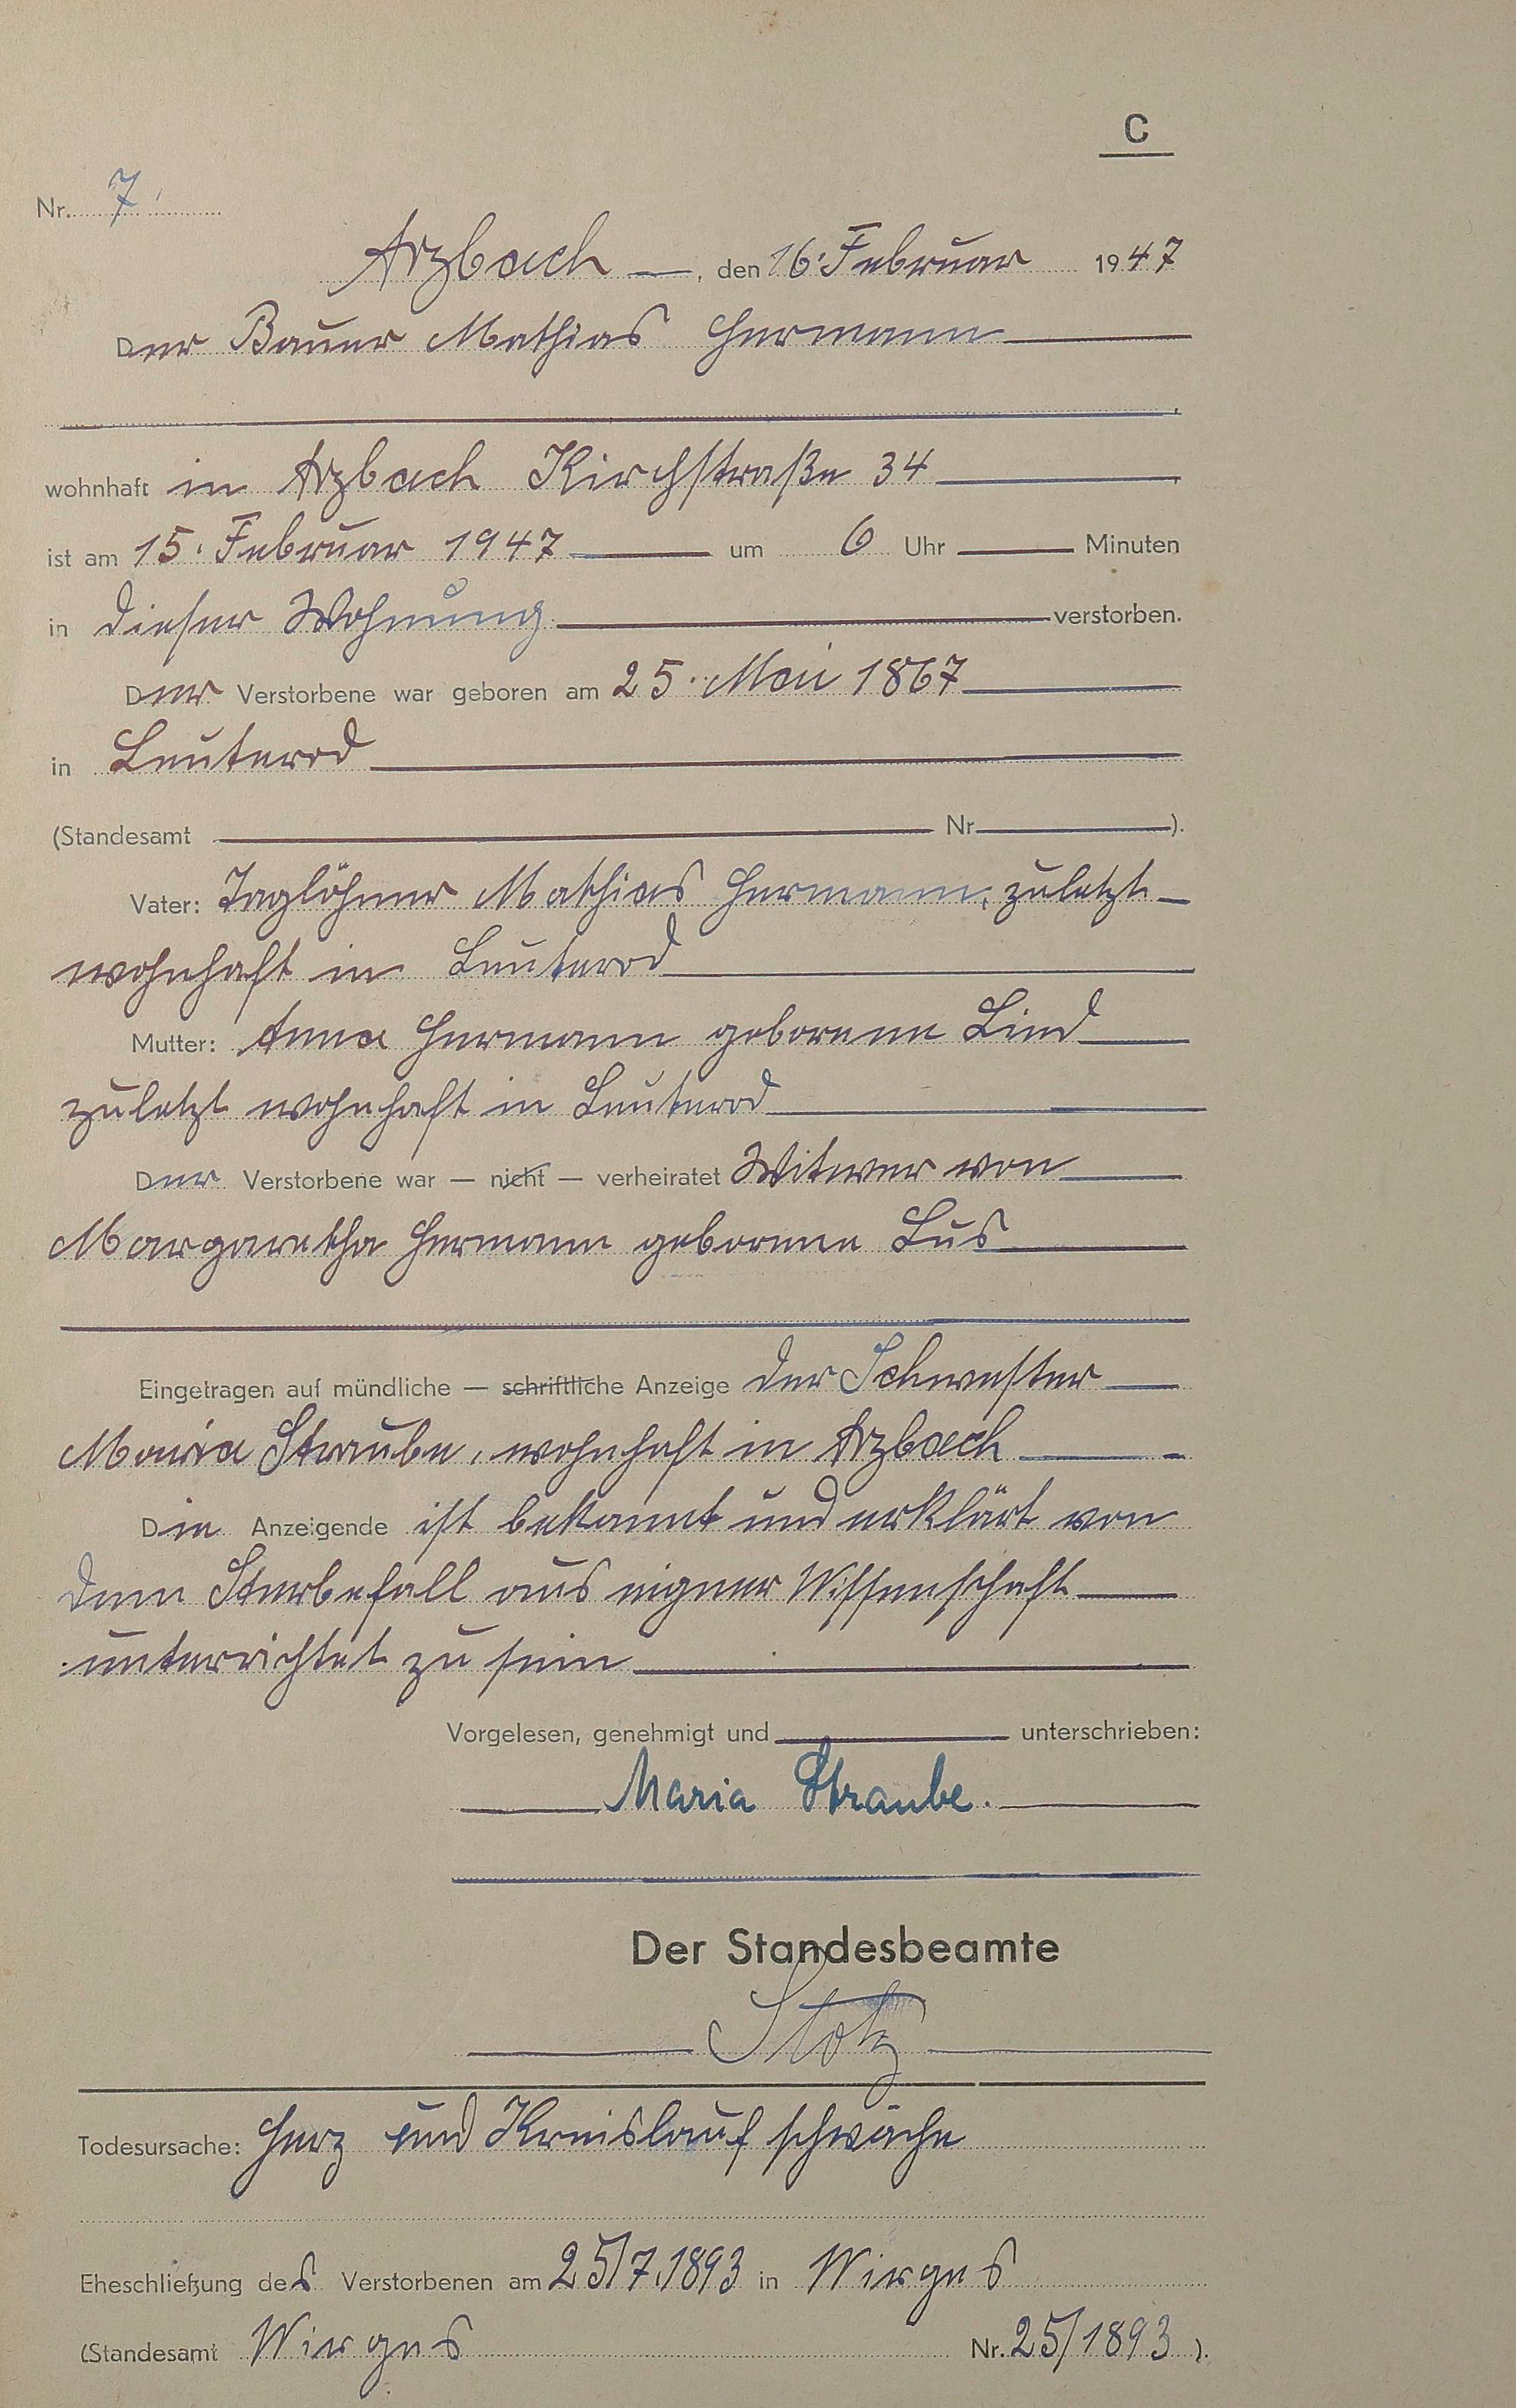 C
Nr. 7
Arzbach, den 16. Februar 1947
Der Bauer Mathias Hermann
wohnhaft in Arzbach Kirchstraße 34
ist am 15. Februar 1947 um 6 Uhr Minuten
in dieser Wohnung verstorben.
Der Verstorbene war geboren am 25. Mai 1867
in Leuterod
(Standesamt Nr. ).
Vater: Taglöhner Mathias Hermann, zuletzt
wohnhaft in Leuterod
Mutter: Anna Hermann geborene Lind
zuletzt wohnhaft in Leuterod
Der Verstorbene war — nicht — verheiratet Witwer von
Margaretha Hermann geborene Lus
Eingetragen auf mündliche — schriftliche Anzeige der Schwester
Maria Straube, wohnhaft in Arzbach
Die Anzeigende ist bekannt und erklärt von
dem Sterbefall aus eigner Wissenschaft
unterrichtet zu sein
Vorgelesen, genehmigt und unterschrieben:
Maria Straube.
Der Standesbeamte
Stotz
Todesursache: Herz und Kreislauf schwäche
Eheschließung des Verstorbenen am 25/7.1893 in Wirges
(Standesamt Wirges Nr. 25/1893 ).